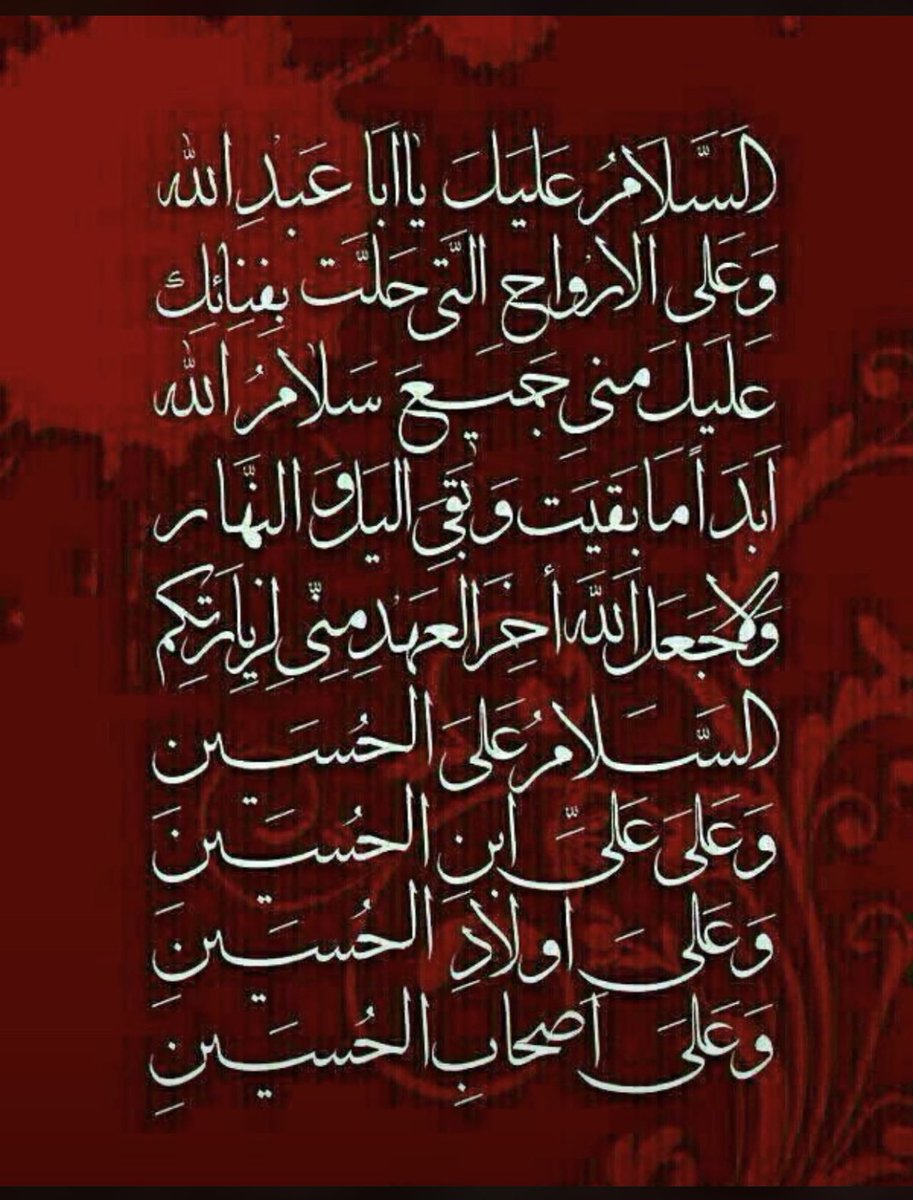 اَلسَّلَامُ عَلَيكَ يٰا اَبٰا عَبْدِ اللّٰه
وَعَلى الارْواحِ الَّتى حَلَّت بِفِنٰائِك
عَلَيكَ مِنى جَميعَ سَلامُ اللّٰه
اَبَداً مٰا بَقيَت وَ بَقِىَ اليَل وَ النَّهٰار
وَلا جَعَلَ اَللّٰه أخِرَ العَهْدِ مِنّى لِزِيٰارَتِكُم
اَلسَّلَامُ عَلىَ الحُسَين
وَعَلىَ عَلىِّ ابن الحُسَينَ
وَعَلىَ اولٰادِ الحُسَينِ
وَعَلىَ اَصحٰابِ الحُسَينِ